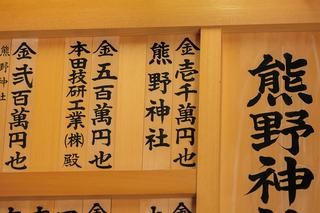 熊野神
金壱千萬円也
熊野神社
金五百萬円也
本田技研工業㈱殿
金弐百萬円也
熊野神社